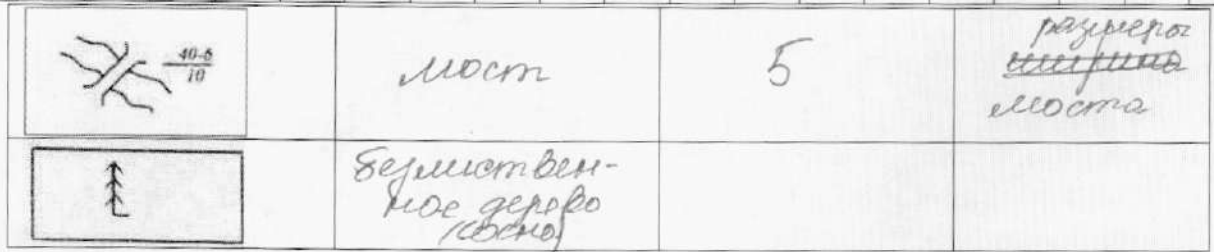 40-6
10
мост
5
размеры
ширина
моста
безлиствен-
ное дерево
(сосна)